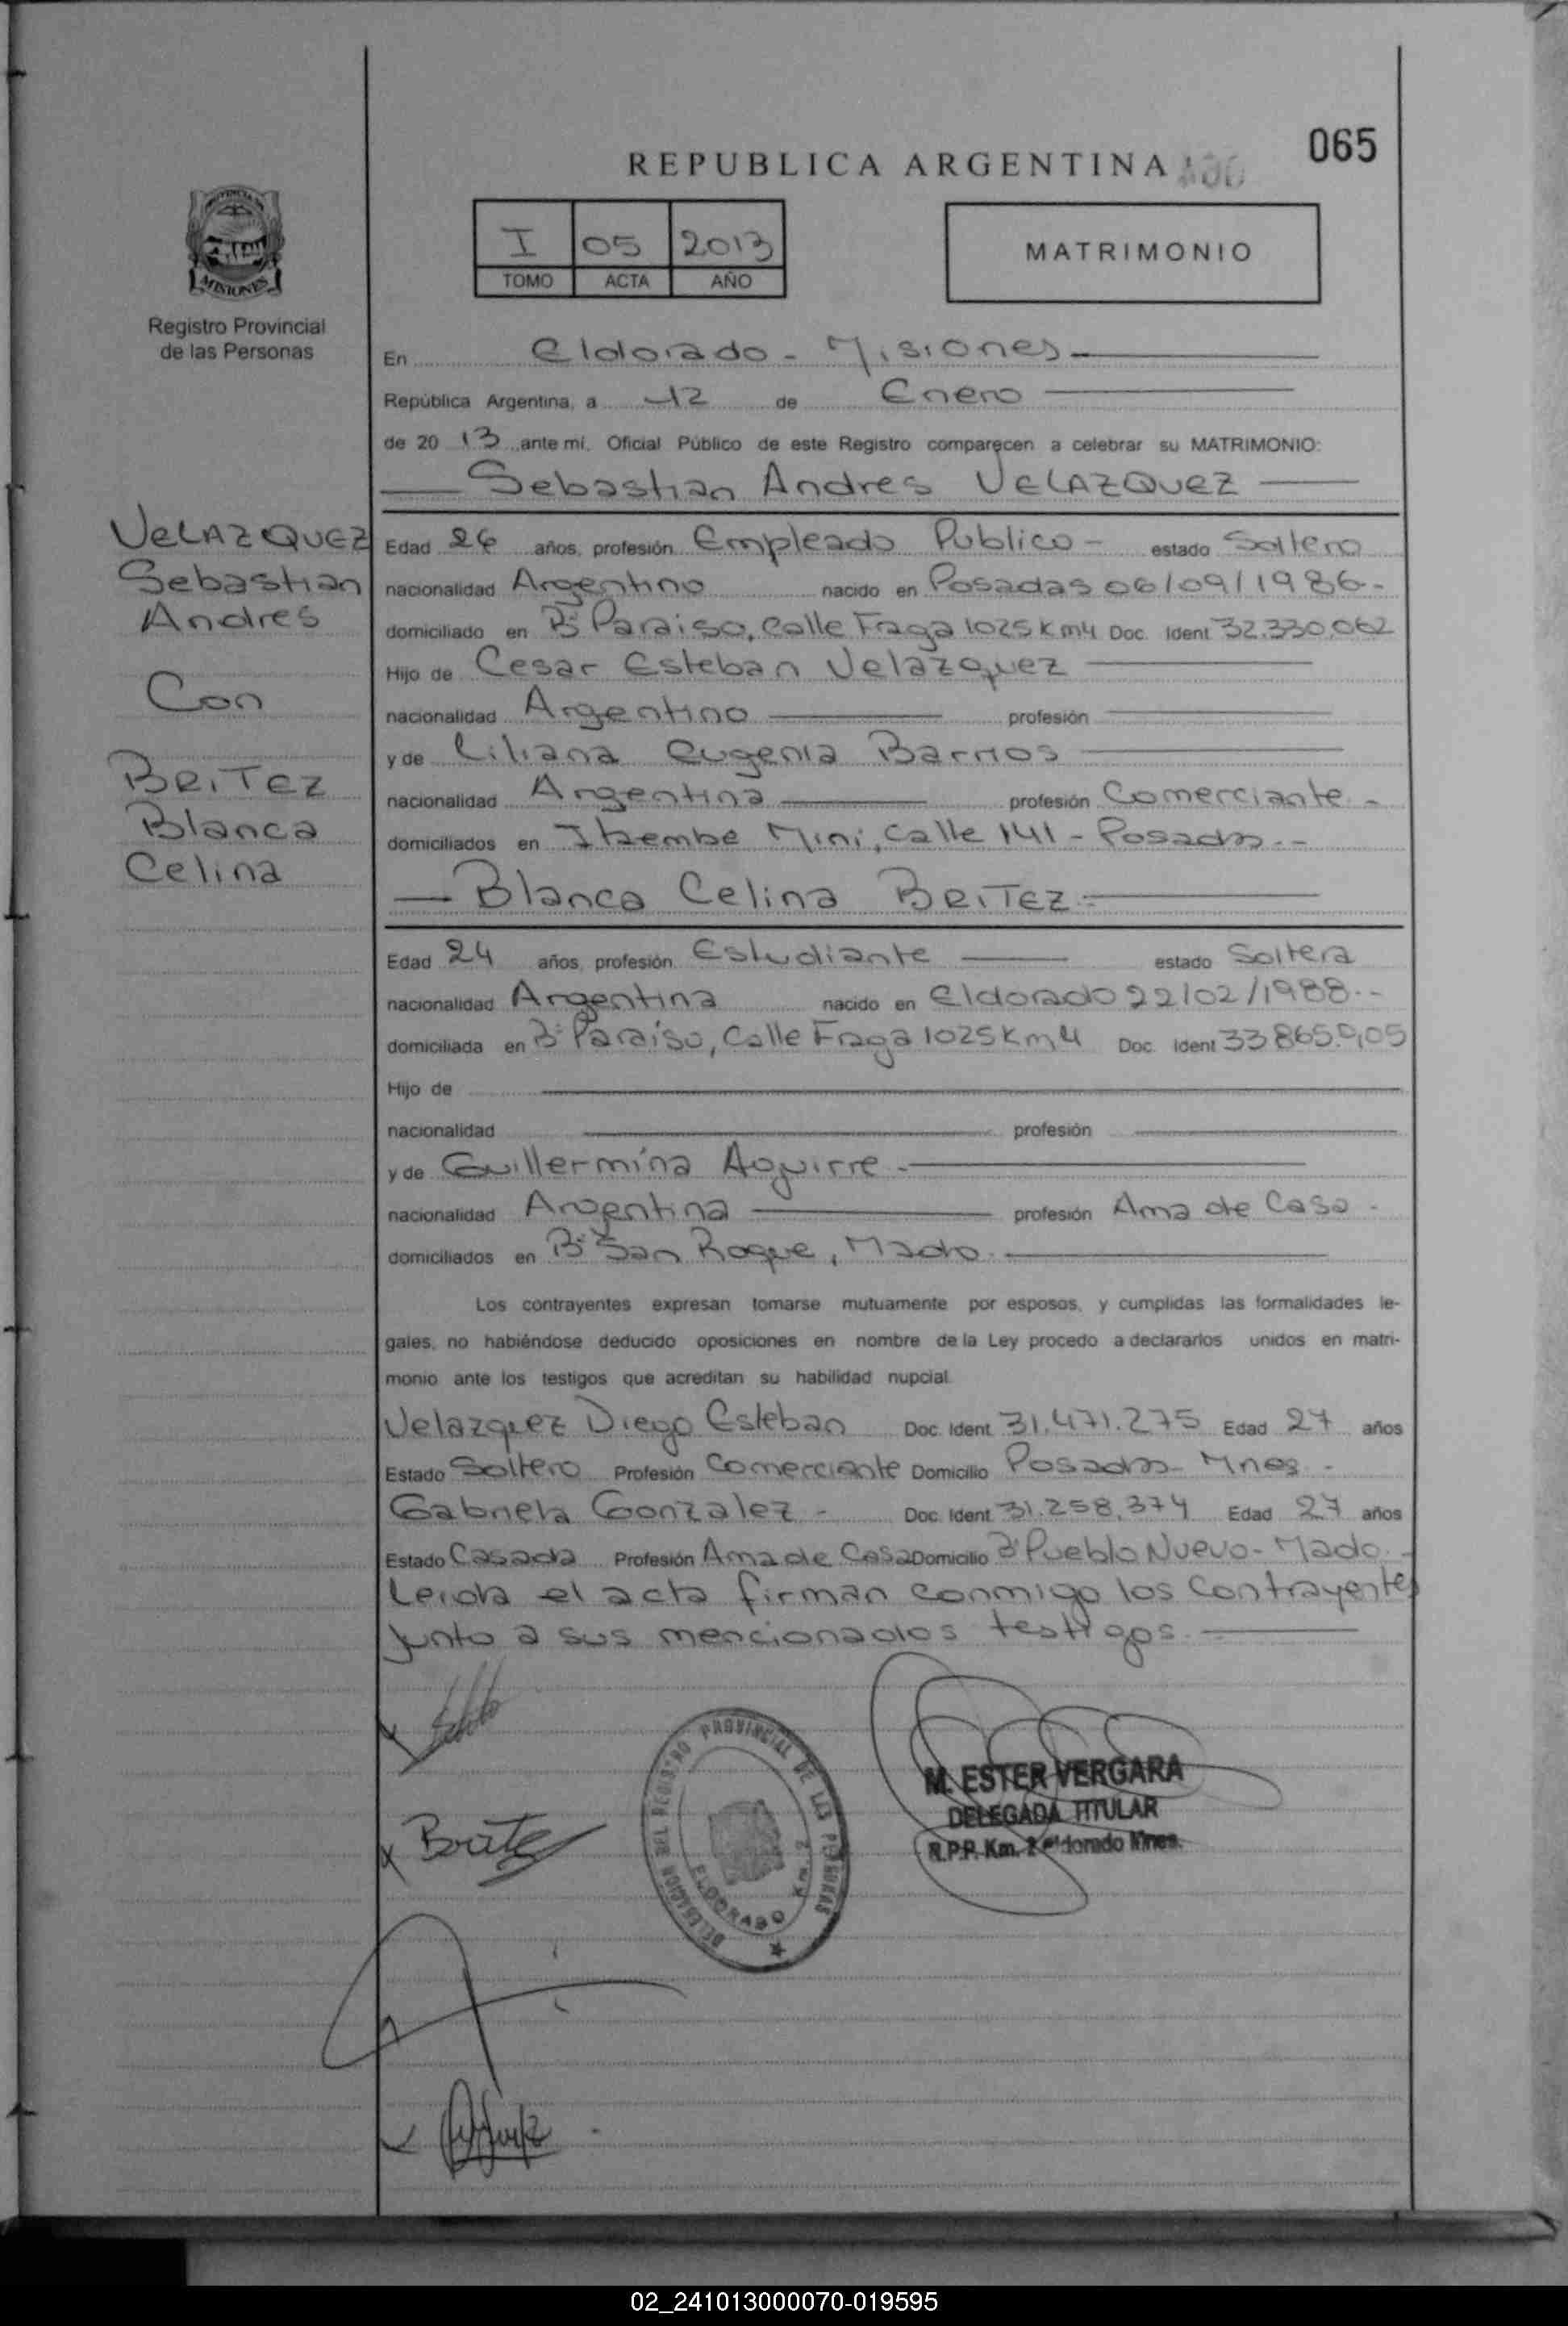 065
REPUBLICA ARGENTINA
I 05 2013
TOMO ACTA AÑO
MATRIMONIO
MISIONES
Registro Provincial
de las Personas
En Eldorado - Misiones
República Argentina, a 12 de Enero
de 20 13 ante mí, Oficial Público de este Registro comparecen a celebrar su MATRIMONIO:
Sebastian Andres VELAZQUEZ
VELAZQUEZ
Sebastian
Andres
Con
BRITEZ
Blanca
Celina
Edad 26 años, profesión Empleado Publico - estado Soltero
nacionalidad Argentino nacido en Posadas 06/09/1986.-
domiciliado en Bº Paraiso, Calle Fraga 1025 Km4 Doc. Ident 32.330.062
Hijo de Cesar Esteban Velazquez
nacionalidad Argentino profesión
y de Liliana Eugenia Barrios
nacionalidad Argentina profesión Comerciante -
domiciliados en Itaembe Mini, Calle 141 - Posadas.-
Blanca Celina BRITEZ.-
Edad 24 años, profesión Estudiante estado Soltera
nacionalidad Argentina nacido en Eldorado 22/02/1988.-
domiciliada en Bº Paraiso, Calle Fraga 1025 Km4 Doc. Ident
Hijo de
nacionalidad profesión
y de Guillermina Aguirre.-
nacionalidad Argentina profesión Ama de Casa -
domiciliados en Bº San Roque, Mado.
Los contrayentes expresan tomarse mutuamente por esposos, y cumplidas las formalidades le-
gales, no habiéndose deducido oposiciones en nombre de la Ley procedo a declararlos unidos en matri-
monio ante los testigos que acreditan su habilidad nupcial.
Velazquez Diego Esteban Doc. Ident 31.471.275 Edad 27 años
Estado Soltero Profesión Comerciante Domicilio Posadas - Mnes -
Gabriela Gonzalez - Doc. Ident 31.258.374 Edad 27 años
Estado Casada Profesión Ama de Casa Domicilio Bº Pueblo Nuevo - Mado.-
Leida el acta firman conmigo los Contrayentes
junto a sus mencionados testigos.
DELEGACION DEL REGISTRO PROVINCIAL DE LAS PERSONAS
ELDORADO Km. 2
M. ESTER VERGARA
DELEGADA TITULAR
R.P.P. Km. 2 Eldorado Mnes.
02_241013000070-019595